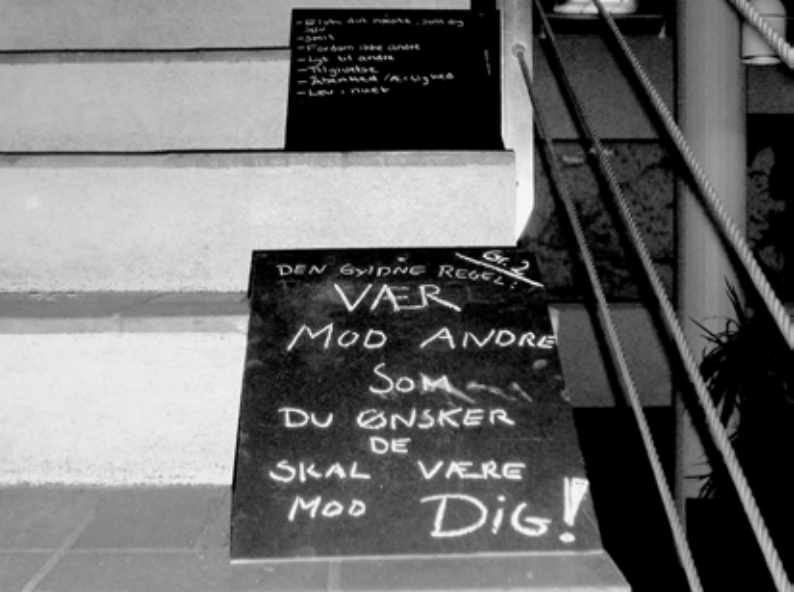 - Elske din næste, som dig
selv
- Smil
- Fordøm ikke andre
- Lyt til andre
- Tilgivelse
- Åbenhed / Ærlighed
- Lev i nuet
Gr. 2
DEN GYLDNE REGEL:
VÆR
MOD ANDRE
SOM
DU ØNSKER
DE
SKAL VÆRE
MOD DIG!